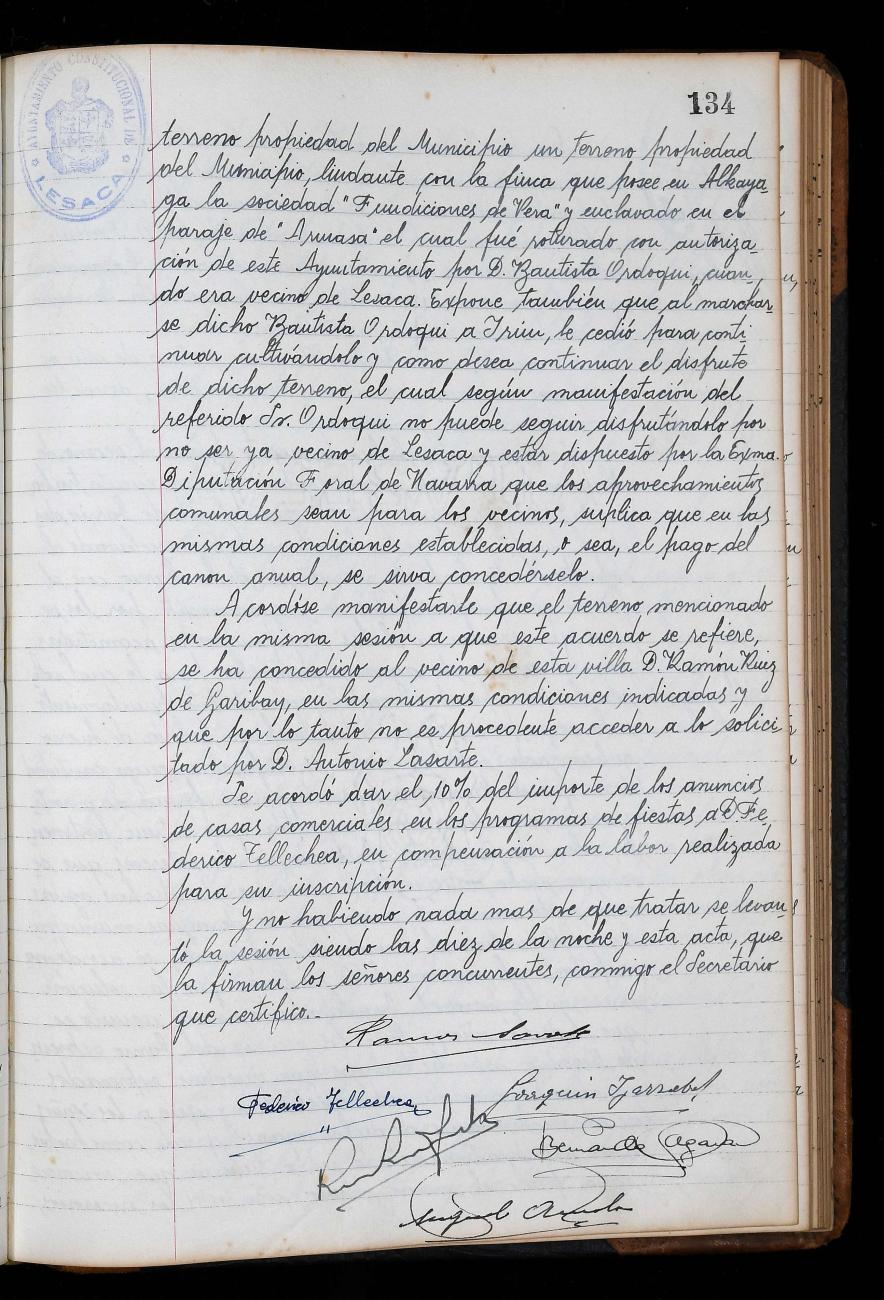 134
AYUNTAMIENTO CONSTITUCIONAL DE
LESACA
terreno propiedad del Municipio un terreno propiedad
del Municipio, lindante con la finca que posee en Alkaya-
ga la sociedad "Fundiciones de Vera" y enclavado en el
paraje de "Armasa" el cual fué roturado con autoriza-
ción de este Ayuntamiento por D. Bautista Ordoqui, cuan-
do era vecino de Lesaca. Expone también que al marchar-
se dicho Bautista Ordoqui a Irún, le cedió para conti-
nuar cultivándolo y como desea continuar el disfrute
de dicho terreno, el cual según manifestación del
referido Sr. Ordoqui no puede seguir disfrutándolo por
no ser ya vecino de Lesaca y estar dispuesto por la Exma.
Diputación Foral de Navarra que los aprovechamientos
comunales sean para los vecinos, suplica que en las
mismas condiciones establecidas, o sea, el pago del
canon anual, se sirva concedérselo.
Acordóse manifestarle que el terreno mencionado
en la misma sesión a que este acuerdo se refiere,
se ha concedido al vecino de esta villa D. Ramón Ruiz
de Garibay, en las mismas condiciones indicadas y
que por lo tanto no es procedente acceder a lo solici
tado por D. Antonio Lasarte.
Se acordó dar el 10% del importe de los anuncios
de casas comerciales en los programas de fiestas a D. Fe-
derico Tellechea, en compensación a la labor realizada
para su inscripción.
Y no habiendo nada mas de que tratar se levan-
tó la sesión siendo las diez de la noche y esta acta, que
la firman los señores concurrentes, conmigo el Secretario
que certifico.-
Ramos
Federico Tellechea
Joaquin
Bernardo
Miguel